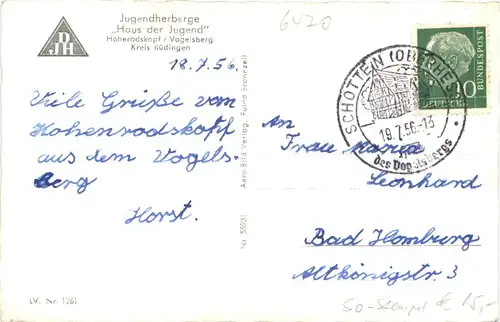 Jugendherberge
„Haus der Jugend"
Hoherodskopf / Vogelsberg
Kreis Büdingen
DJH
6420
18.7.56.
Viele Grüße vom
Hohenrodskopf
aus dem Vogels-
berg
Horst.
Aero Bild Verlag, Fulda Bronnzell
Nr. 55931
LV. Nr. 1261
SCHOTTEN (OBERHESS
19.7.56-13
des Vogelsbergs
DEUTSCHE BUNDESPOST
An
Frau Maria
Leonhard
Bad Homburg
Altkönigstr. 3
SO-Stempel € 15,-